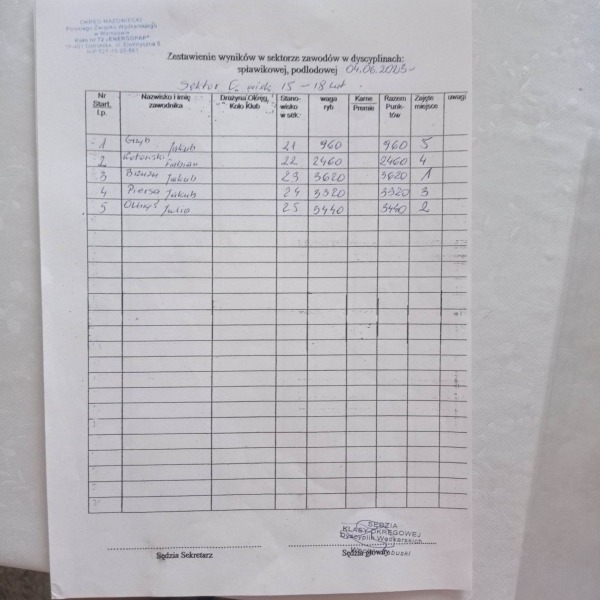 OKRĘG MAZOWIECKI
Polskiego Związku Wędkarskiego
w Warszawie
Koło nr 72 „ENERGOPAP"
Zestawienie wyników w sektorze zawodów w dyscyplinach:
spławikowej, podlodowej 04.06.2023
Sektor C, wiek 15 - 18 lat.
Nr Start. l.p. Nazwisko i imię zawodnika Drużyna Okręg, Koło Klub Stano-wisko w sek. waga ryb Karne Premie Razem Punk-tów Zajęte miejsce uwagi
1 Grzyb Jakub 21 960 960 5
2 Fabian 22 2460 2460 4
3 Jakub 23 3620 3620 1
4 Piersa Jakub 24 3320 3320 3
5 Julia 25 3440 3440 2
SĘDZIA
KLASY OKRĘGOWEJ
Dyscyplin Wędkarskich
Sędzia Sekretarz Sędzia główny